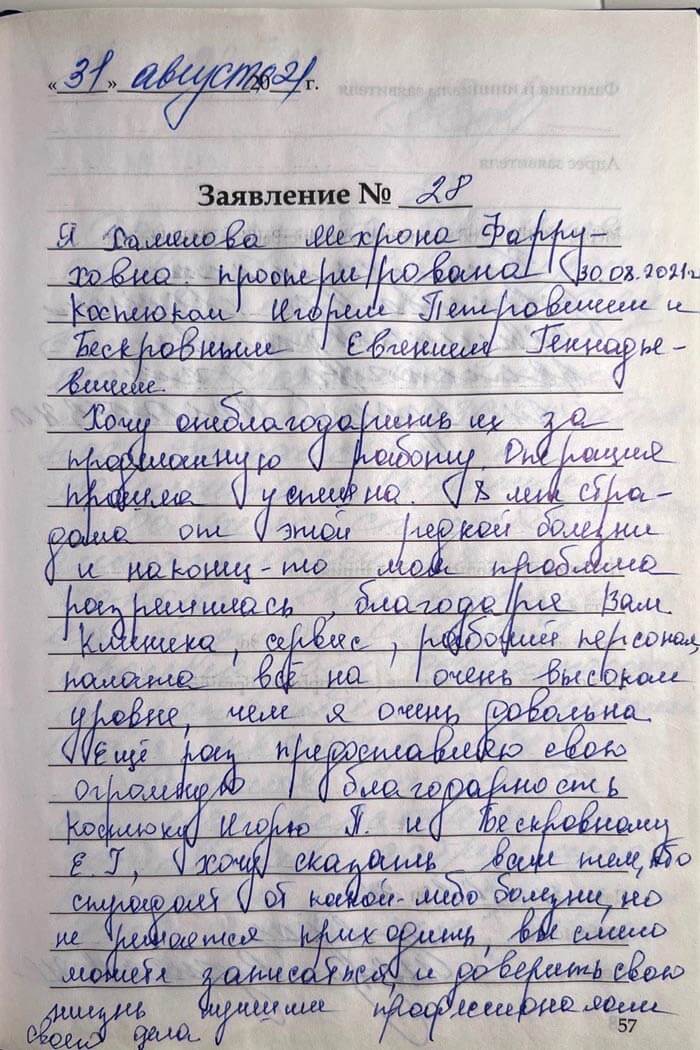 «31» августа 2021 г.
Заявление № 28
Я Хамелова Мехрона Фарру-
ховна прооперирована 30.08.2021г
Костюком Игорем Петровичем и
Бескровным Евгением Геннадье-
вичем.
Хочу отблагодарить их за
проделанную работу. Операция
прошла успешна. 8 лет стра-
дала от этой редкой болезни
и наконец-то моя проблема
разрешилась, благодаря Вам.
Клиника, сервис, рабочий персонал,
палата всё на очень высоком
уровне, чем я очень довольна.
Ещё раз предоставляю свою
огромную благодарность
Костюку Игорю П. и Бескровному
Е.Г., хочу сказать всем тем, кто
страдает от какой-либо болезни, но
не решается приходить, вы смело
можете записаться и доверить свою
жизнь лучшим профессионалам
своего дела
57